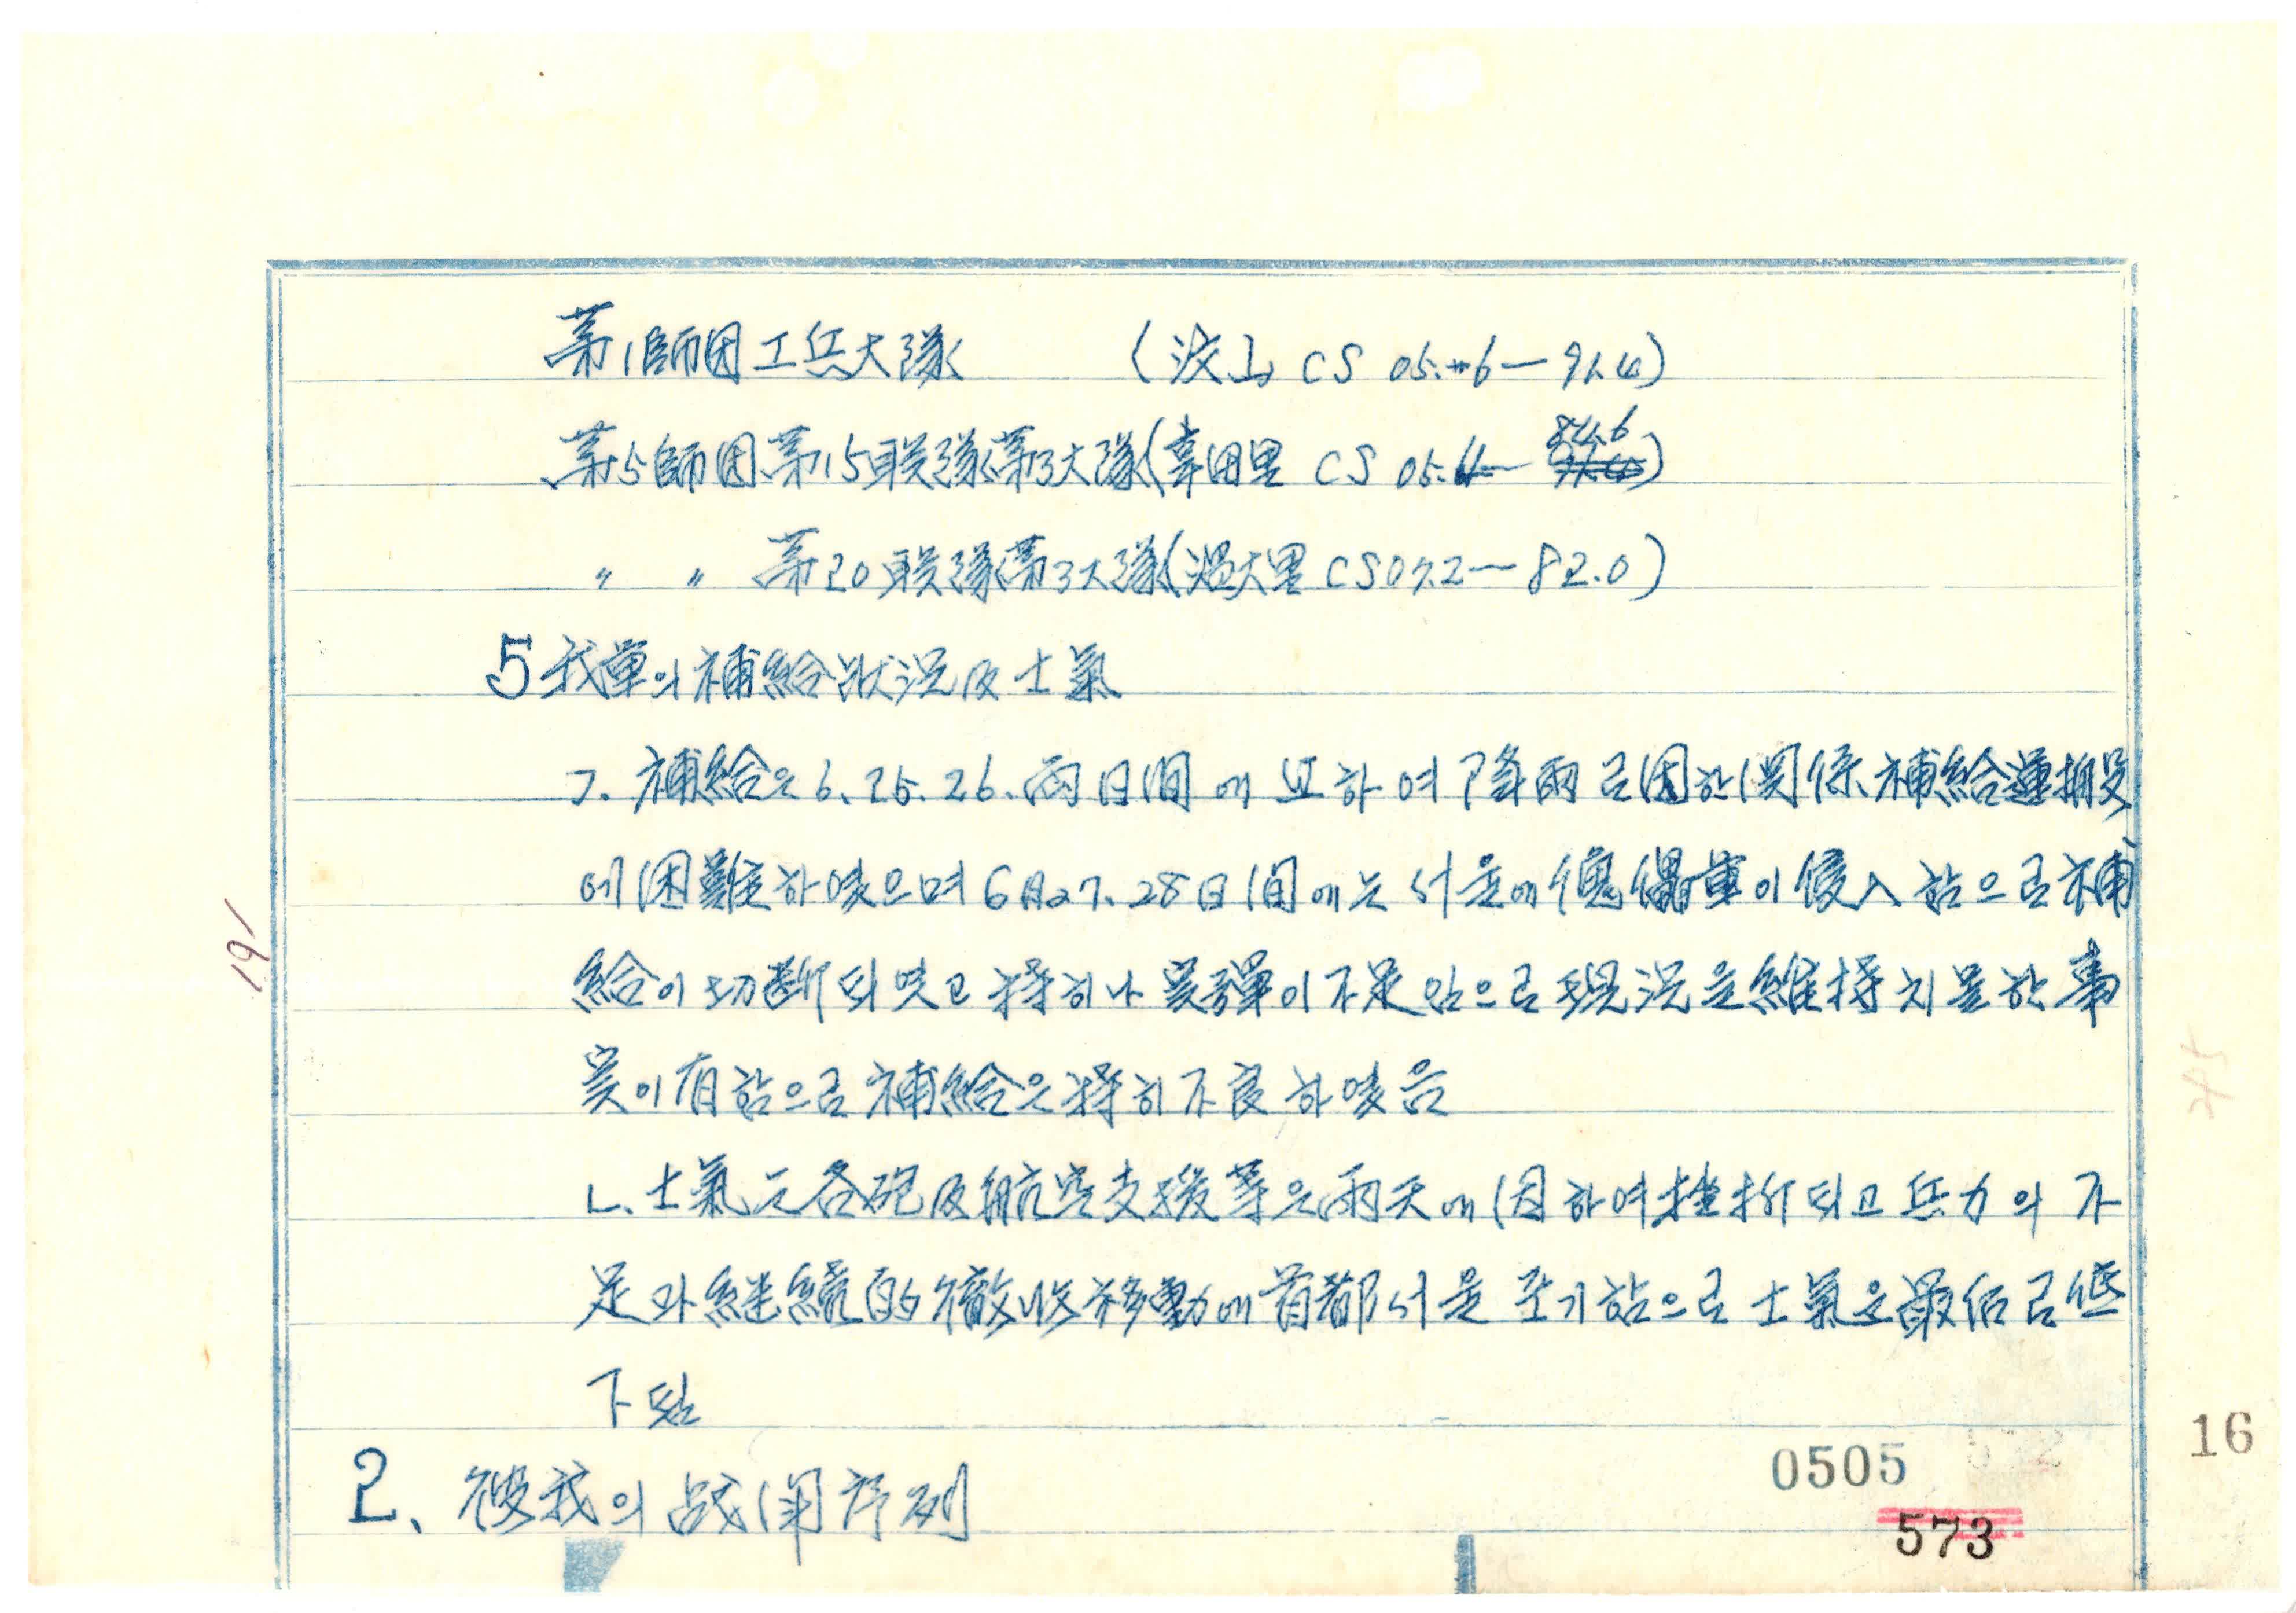 第1師団工兵大隊 (汶山 CS 05.6—91.4)
第5師団第15联隊第3大隊(幸田里 CS 05.4— 84.6)
〃 〃 第20联隊第3大隊( CS07.2—82.0)
5 我軍의 補給狀況及士氣
ㄱ. 補給은 6.25.26. 兩日間에 比하여 降雨로 因한 関係 補給運搬
에 困難하였으며 6月27.28日間에는 서울에 傀儡軍이 侵入함으로 補
給이 切断되었고 特히나 実彈이 不足함으로 現況을 維持치 못한 事
実이 有함으로 補給은 特히 不良하였음
ㄴ. 士氣는 各砲及航空支援等은 雨天에 因하여 挫折되고 兵力의 不
足과 継続的 撤收移動에 首都서울 포기함으로 士氣을 最低로 低
下됨
2、彼我의 战闘序列
0505
573
16
191